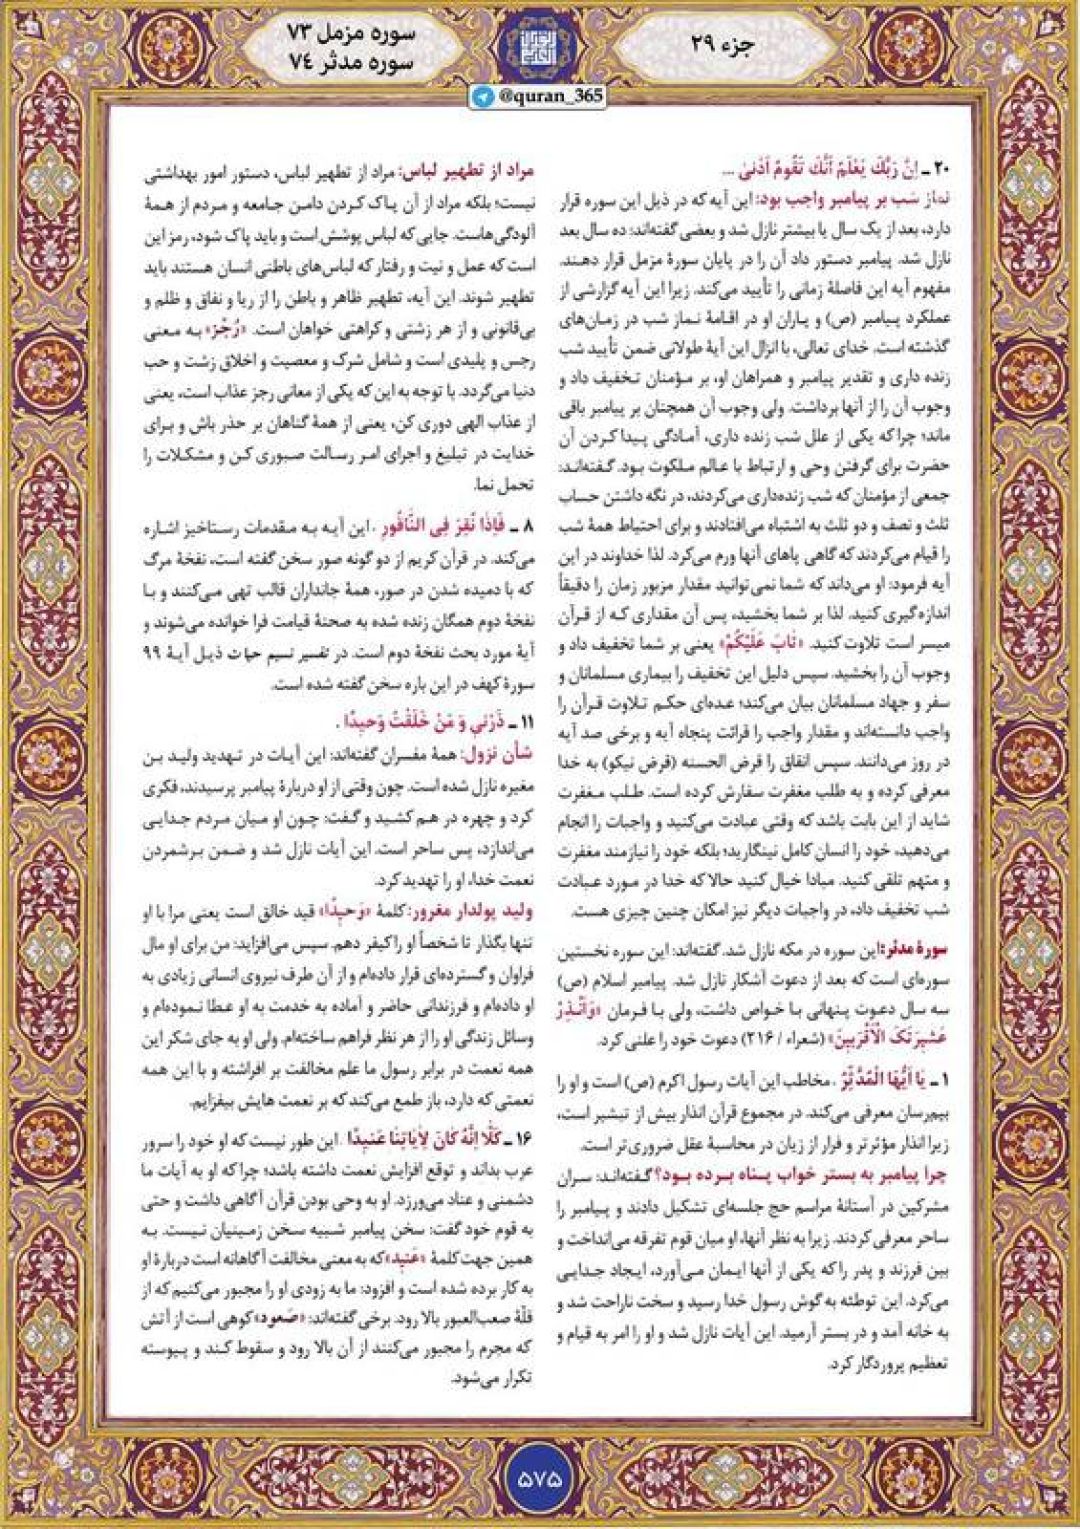 جزء ۲۹
سوره مزمل ۷۳
سوره مدثر ۷٤
@quran_365
۲۰ ـ اِنَّ رَبَّكَ يَعْلَمُ اَنَّكَ تَقُومُ اَدْنىٰ ...
نماز شب بر پیامبر واجب بود: این آیه که در ذیل این سوره قرار
دارد، بعد از یک سال یا بیشتر نازل شد و بعضی گفته‌اند: ده سال بعد
نازل شد. پیامبر دستور داد آن را در پایان سورهٔ مزمل قرار دهند.
مفهوم آیه این فاصلهٔ زمانی را تأیید می‌کند. زیرا این آیه گزارشی از
عملکرد پیامبر (ص) و یاران او در اقامهٔ نماز شب در زمان‌های
گذشته است. خدای تعالی، با انزال این آیهٔ طولانی ضمن تأیید شب
زنده داری و تقدیر پیامبر و همراهان او، بر مؤمنان تخفیف داد و
وجوب آن را از آنها برداشت. ولی وجوب آن همچنان بر پیامبر باقی
ماند؛ چرا که یکی از علل شب زنده داری، آمادگی پیدا کردن آن
حضرت برای گرفتن وحی و ارتباط با عالم ملکوت بود. گفته‌اند:
جمعی از مؤمنان که شب زنده‌داری می‌کردند، در نگه داشتن حساب
ثلث و نصف و دو ثلث به اشتباه می‌افتادند و برای احتیاط همهٔ شب
را قیام می‌کردند که گاهی پاهای آنها ورم می‌کرد. لذا خداوند در این
آیه فرمود: او می‌داند که شما نمی‌توانید مقدار مزبور زمان را دقیقاً
اندازه‌گیری کنید. لذا بر شما بخشید، پس آن مقداری که از قرآن
میسر است تلاوت کنید. «تَابَ عَلَيْكُمْ» یعنی بر شما تخفیف داد و
وجوب آن را بخشید. سپس دلیل این تخفیف را بیماری مسلمانان و
سفر و جهاد مسلمانان بیان می‌کند؛ عده‌ای حکم تلاوت قرآن را
واجب دانسته‌اند و مقدار واجب را قرائت پنجاه آیه و برخی صد آیه
در روز می‌دانند. سپس انفاق را قرض الحسنه (قرض نیکو) به خدا
معرفی کرده و به طلب مغفرت سفارش کرده است. طلب مغفرت
شاید از این بابت باشد که وقتی عبادت می‌کنید و واجبات را انجام
می‌دهید، خود را انسان کامل نینگارید؛ بلکه خود را نیازمند مغفرت
و متهم تلقی کنید. مبادا خیال کنید حالا که خدا در مورد عبادت
شب تخفیف داد، در واجبات دیگر نیز امکان چنین چیزی هست.
سورهٔ مدثر: این سوره در مکه نازل شد. گفته‌اند: این سوره نخستین
سوره‌ای است که بعد از دعوت آشکار نازل شد. پیامبر اسلام (ص)
سه سال دعوت پنهانی با خواص داشت، ولی با فرمان «وَاَنْذِرْ
عَشِيرَتَكَ الْاَقْرَبِينَ» (شعراء / ۲۱۶) دعوت خود را علنی کرد.
۱ ـ يَا اَيُّهَا الْمُدَّثِّرُ . مخاطب این آیات رسول اکرم (ص) است و او را
بیم‌رسان معرفی می‌کند. در مجموع قرآن انذار بیش از تبشیر است،
زیرا انذار مؤثرتر و فرار از زیان در محاسبهٔ عقل ضروری‌تر است.
چرا پیامبر به بستر خواب پناه برده بود؟ گفته‌اند: سران
مشرکین در آستانهٔ مراسم حج جلسه‌ای تشکیل دادند و پیامبر را
ساحر معرفی کردند. زیرا به نظر آنها، او میان قوم تفرقه می‌انداخت و
بین فرزند و پدر را که یکی از آنها ایمان می‌آورد، ایجاد جدایی
می‌کرد. این توطئه به گوش رسول خدا رسید و سخت ناراحت شد و
به خانه آمد و در بستر آرمید. این آیات نازل شد و او را امر به قیام و
تعظیم پروردگار کرد.
مراد از تطهیر لباس: مراد از تطهیر لباس، دستور امور بهداشتی
نیست؛ بلکه مراد از آن پاک کردن دامن جامعه و مردم از همهٔ
آلودگی‌هاست. جایی که لباس پوشش است و باید پاک شود، رمز این
است که عمل و نیت و رفتار که لباس‌های باطنی انسان هستند باید
تطهیر شوند. این آیه، تطهیر ظاهر و باطن را از ریا و نفاق و ظلم و
بی‌قانونی و از هر زشتی و کراهتی خواهان است. «رُجْزَ» به معنی
رجس و پلیدی است و شامل شرک و معصیت و اخلاق زشت و حب
دنیا می‌گردد. با توجه به این که یکی از معانی رجز عذاب است، یعنی
از عذاب الهی دوری کن، یعنی از همهٔ گناهان بر حذر باش و برای
خدایت در تبلیغ و اجرای امر رسالت صبوری کن و مشکلات را
تحمل نما.
۸ ـ فَاِذَا نُقِرَ فِى النَّاقُورِ . این آیه به مقدمات رستاخیز اشاره
می‌کند. در قرآن کریم از دو گونه صور سخن گفته است، نفخهٔ مرگ
که با دمیده شدن در صور، همهٔ جانداران قالب تهی می‌کنند و با
نفخهٔ دوم همگان زنده شده به صحنهٔ قیامت فرا خوانده می‌شوند و
آیهٔ مورد بحث نفخهٔ دوم است. در تفسیر نسیم حیات ذیل آیهٔ ۹۹
سورهٔ کهف در این باره سخن گفته شده است.
۱۱ ـ ذَرْنِي وَ مَنْ خَلَقْتُ وَحِيدًا .
شأن نزول: همهٔ مفسران گفته‌اند: این آیات در تهدید ولید بن
مغیره نازل شده است. چون وقتی از او دربارهٔ پیامبر پرسیدند، فکری
کرد و چهره در هم کشید و گفت: چون او میان مردم جدایی
می‌اندازد، پس ساحر است. این آیات نازل شد و ضمن برشمردن
نعمت خدا، او را تهدید کرد.
ولید پولدار مغرور: کلمهٔ «وَحِيدًا» قید خالق است یعنی مرا با او
تنها بگذار تا شخصاً او را کیفر دهم. سپس می‌افزاید: من برای او مال
فراوان و گسترده‌ای قرار داده‌ام و از آن طرف نیروی انسانی زیادی به
او داده‌ام و فرزندانی حاضر و آماده به خدمت به او عطا نموده‌ام و
وسائل زندگی او را از هر نظر فراهم ساخته‌ام. ولی او به جای شکر این
همه نعمت در برابر رسول ما علم مخالفت بر افراشته و با این همه
نعمتی که دارد، باز طمع می‌کند که بر نعمت هایش بیفزایم.
۱۶ ـ كَلَّا اِنَّهُ كَانَ لِاٰيَاتِنَا عَنِيدًا . این طور نیست که او خود را سرور
عرب بداند و توقع افزایش نعمت داشته باشد؛ چرا که او به آیات ما
دشمنی و عناد می‌ورزد. او به وحی بودن قرآن آگاهی داشت و حتی
به قوم خود گفت: سخن پیامبر شبیه سخن زمینیان نیست. به
همین جهت کلمهٔ «عَنِيد» که به معنی مخالفت آگاهانه است دربارهٔ او
به کار برده شده است و افزود: ما به زودی او را مجبور می‌کنیم که از
قلّهٔ صعب‌العبور بالا رود. برخی گفته‌اند: «صَعود» کوهی است از آتش
که مجرم را مجبور می‌کنند از آن بالا رود و سقوط کند و پیوسته
تکرار می‌شود.
۵۷۵